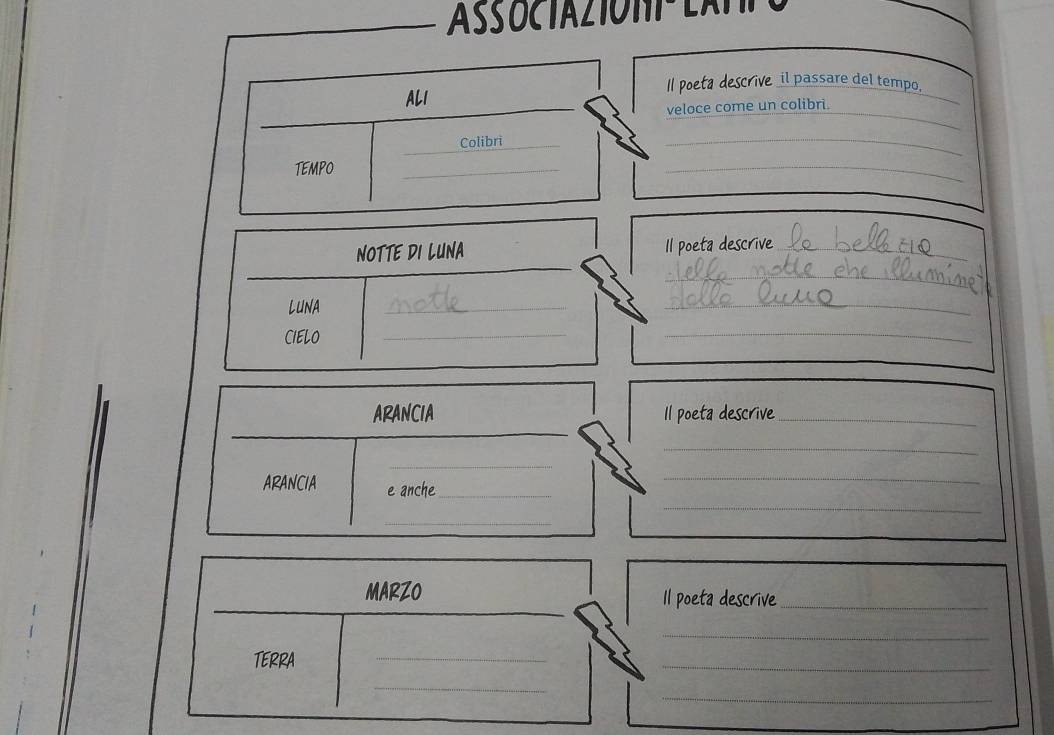 ASSOCIAZIONI-LAMPO
ALI
TEMPO
Colibrì
Il poeta descrive il passare del tempo,
veloce come un colibrì.
NOTTE DI LUNA
LUNA
CIELO
notte
Il poeta descrive la bellezza
della notte che illuminata
dalla luna
ARANCIA
ARANCIA
e anche
Il poeta descrive
MARZO
TERRA
Il poeta descrive